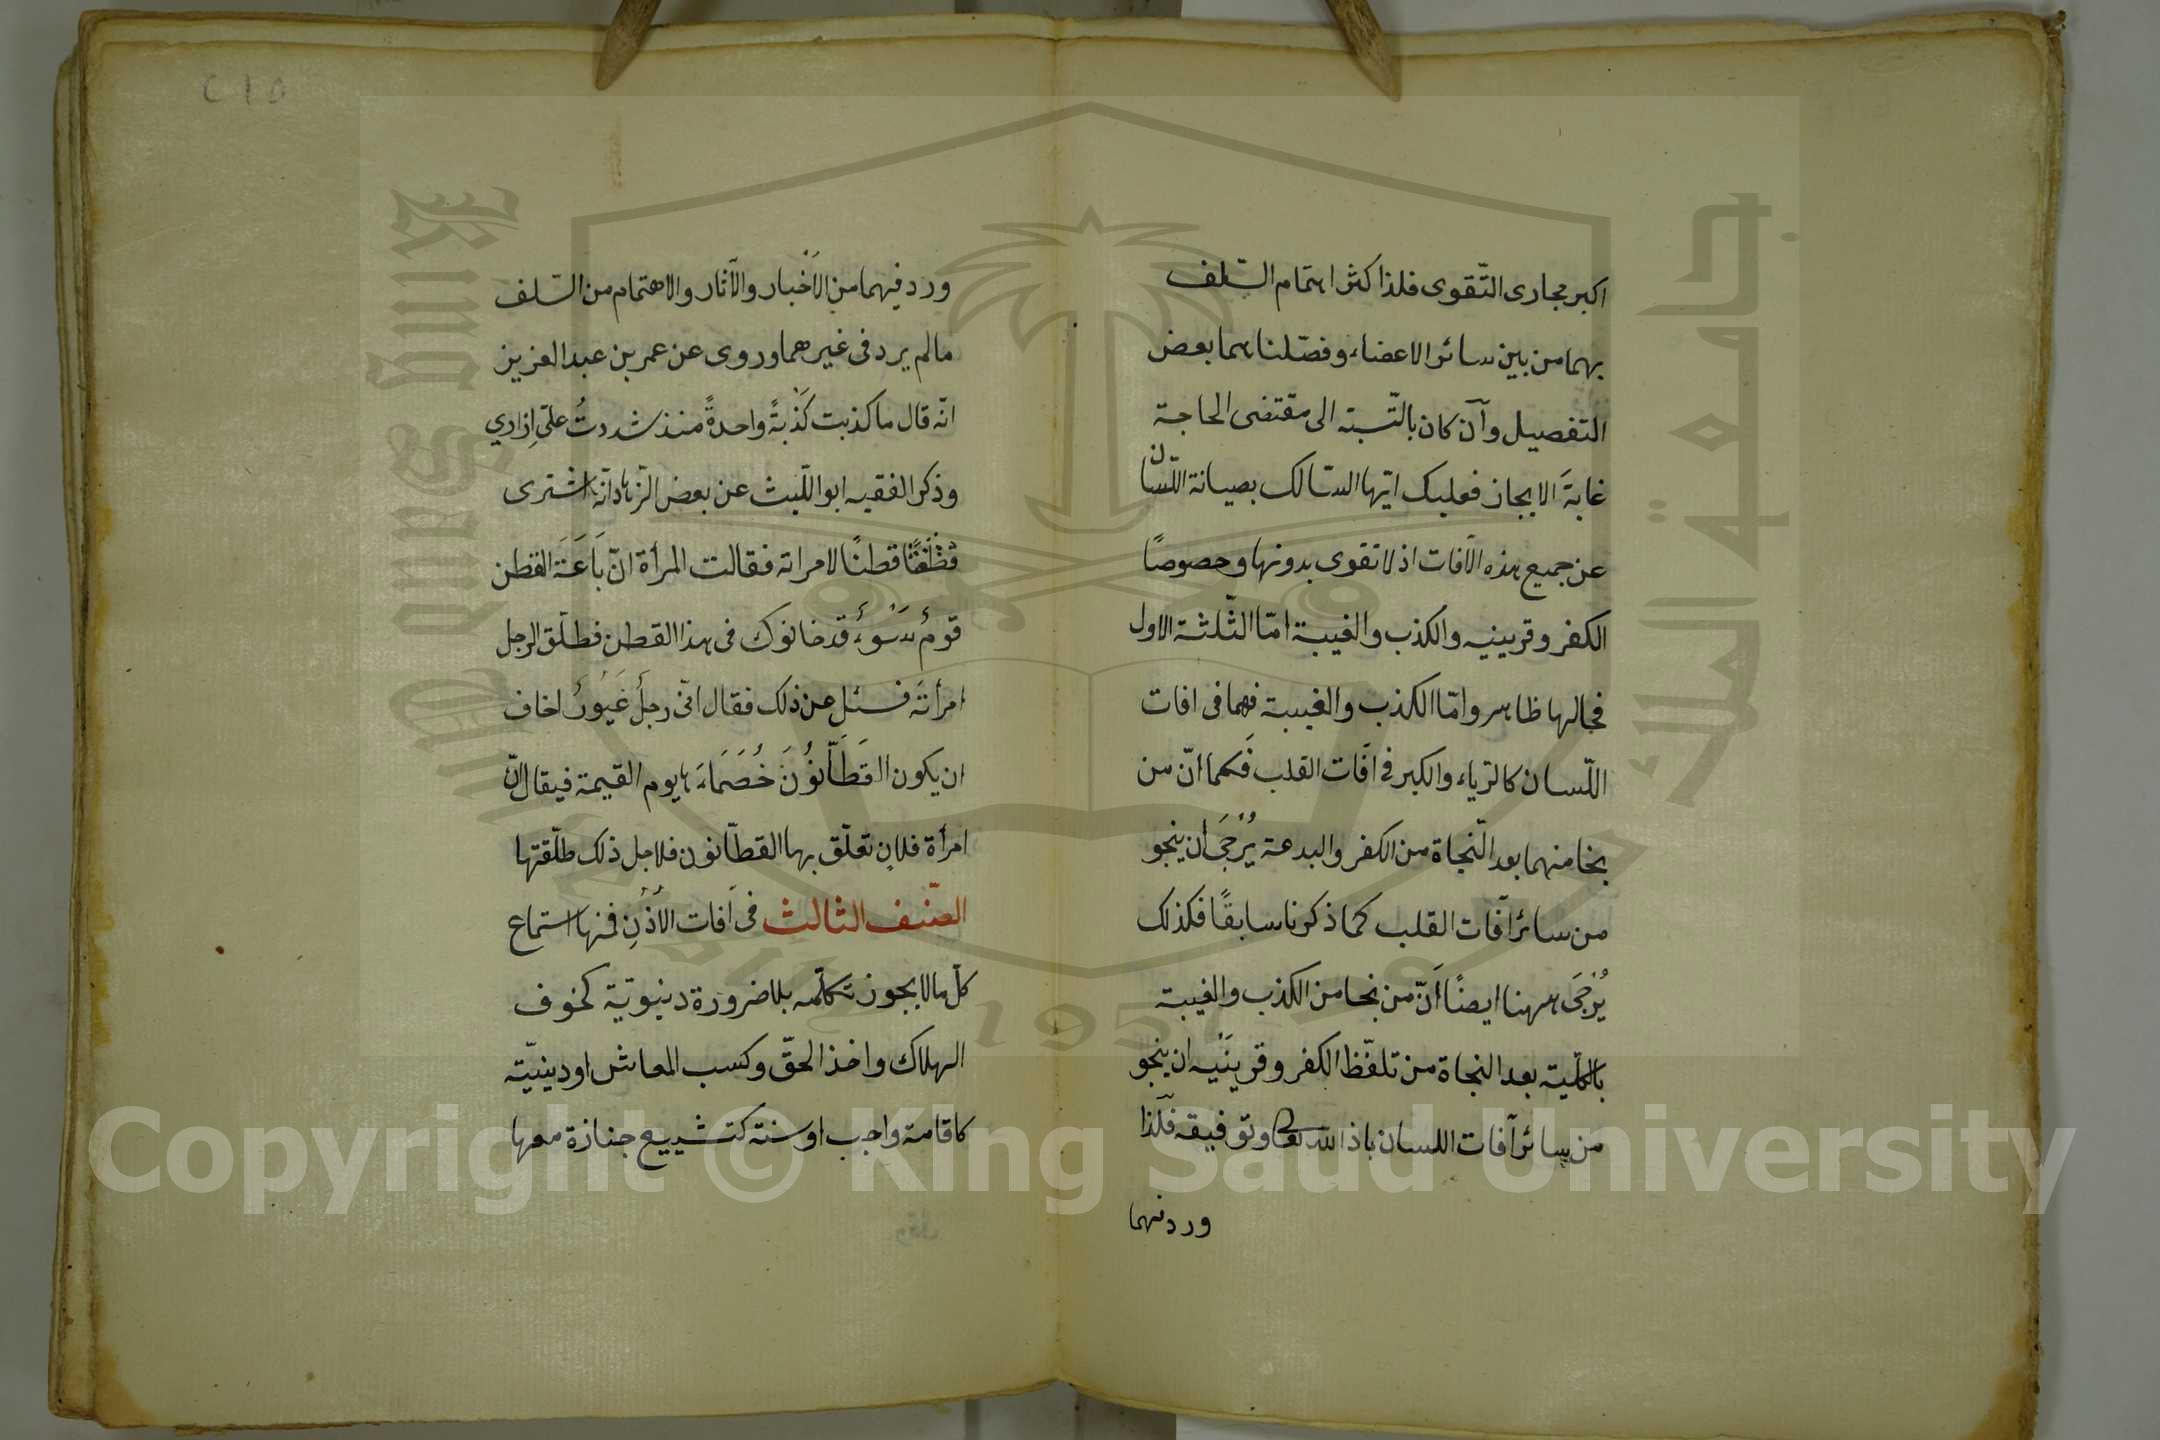 اكبر مجارى التّقوى فلذا كثر اهتمام السّلف
بهما من بين سائر الاعضاء وفصّلنا هما بعض
التفصيل وان كان بالنّسبة الى مقتضى الحاجة
غايةَ الايجاز فعليك ايّها السّالك بصيانة اللّسان
عن جميع هذه الآفات اذ لا تقوى بدونها وخصوصًا
الكفر وقرينيه والكذب والغيبة امّا الثّلثة الاول
فحالها ظاهر وامّا الكذب والغيبة فهما فى افات
اللّسان كالرّياء والكبر فى آفات القلب فكما انّ من
نجا منهما بعد النّجاة من الكفر والبدعة يُرْجَى ان ينجو
من سائر آفات القلب كما ذكرنا سابقًا فكذلك
يُرْجَى ههنا ايضًا اَنّ من نجا من الكذب والغيبة
بالكلّية بعد النجاة من تلفّظ الكفر وقرينَيْه ان ينجو
من سائر آفات اللسان باذن الله تعالى وتوفيقه فلذا
ورد فيهما
ورد فيهما من الاَخْبار والآثار والاهتمام من السّلف
مالم يرد فى غيرهما وروى عن عمر بن عبد العزيز
انّه قال ما كذبت كَذْبةً واحدةً منذ شددتُ علىّ اِزاري
وذكر الفقيه ابو اللّيث عن بعض الزّهاد انّه اشترى
قطنًا لامراته فقالت المرأة انّ بَاعَةَ القطن
قومُ سَوْءٍ قد خانوك فى هذا القطن فطلّق الرجل
امرأتَه فسئل عن ذلك فقال انّى رجلٌ غَيُورٌ اخاف
ان يكون القَطّانُونَ خُصَمَاءَ ها يوم القيمة فيقال انّ
امرأة فلان تعلّق بها القطّانون فلاجل ذلك طلّقتها
الصّنف الثالث فى آفات الاُذُنِ فمنها استماع
كلّ مالا يجوز تكلّمه بلا ضرورة دنيويّة كخوف
الهلاك واخذ الحقّ وكسب المعاش او دينيّة
كاقامة واجب او سنة كتشييع جنازة معها
Copyright © King Saud University
جامعة الملك سعود
King Saud University
1957